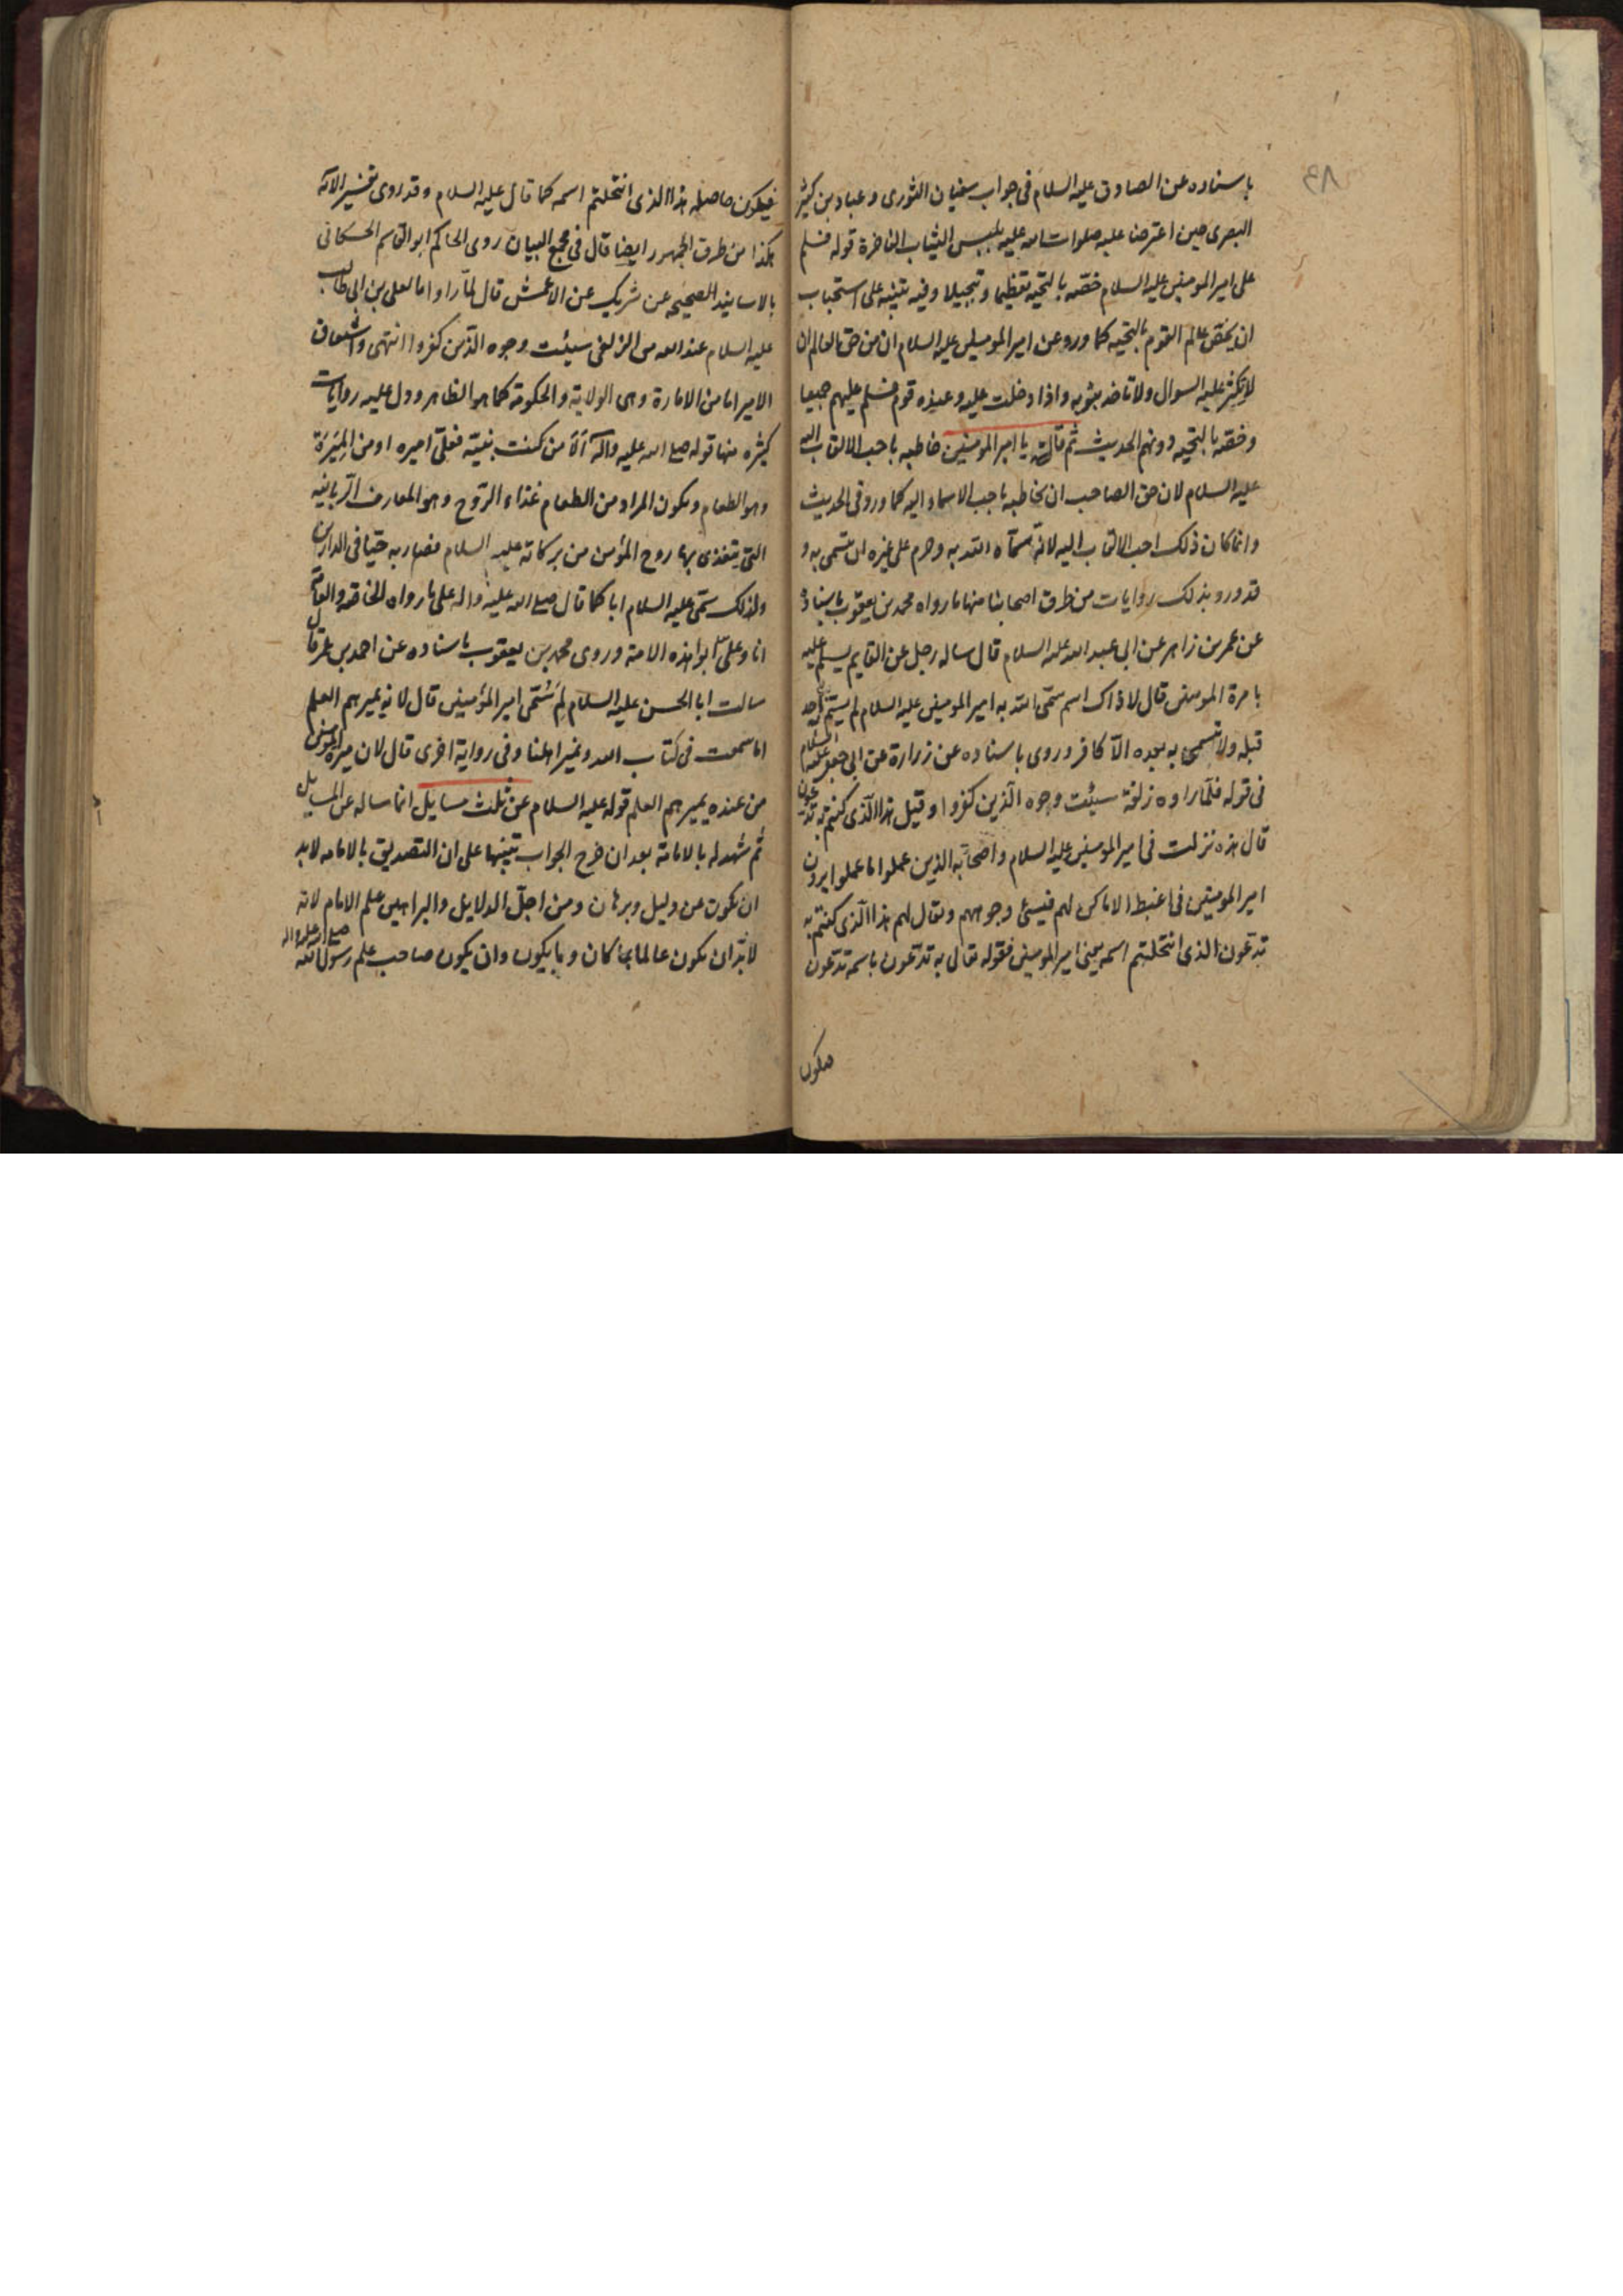 ٤٨
باسناده عن الصادق عليه السلام فى جواب سفيان الثورى و عباد بن كثير
البصرى حين اعترضا عليه صلوات الله عليه بلبس الثياب الفاخرة قوله فسلم
على امير المومنين عليه السلام خصّه بالتحيه تعظيما و تبجيلا وفيه تنبيه على استحباب
ان يخص عالم القوم بالتحيه كما ورد عن امير المومنين عليه السلام ان من حق العالم ان
لا يكثر عليه السوال ولا تاخذ بثوبه واذا دخلت عليه وعنده قوم فسلم عليهم جميعا
وخصّه بالتحيه دونهم الحديث ثم قال يا امير المومنين خاطبه باحب الالقاب اليه
عليه السلام لان حق الصاحب ان يخاطبه باحب الاسماء اليه كما ورد فى الحديث
وانما كان ذلك احب الالقاب اليه لانه سمّاه الله به وحرم على غيره ان يتسمى به و
قد ورد بذلك روايات من طرق اصحابنا منها ما رواه محمد بن يعقوب باسناده
عن عمر بن زاهر عن ابى عبد الله عليه السلام قال ساله رجل عن القايم يسلم عليه
بامرة المومنين قال لا ذاك اسم سمّى الله به امير المومنين عليه السلام لم يسمّ به احد
قبله ولا يتسمى به بعده الّا كافر وروى باسناده عن زرارة عن ابى جعفر عليه السلام
فى قوله فلمّا راوه زلفة سيئت وجوه الّذين كفروا وقيل هذا الّذى كنتم به تدّعون
قال هذه نزلت فى امير المومنين عليه السلام واصحابه الذين عملوا ما عملوا يرون
امير المومنين فى اغبط الاماكن لهم فيسئ وجوههم ويقال لهم هذا الّذى كنتم به
تدّعون الذى انتحلتم اسمه يعنى امير المومنين فقوله تعالى به تدّعون باسمه تدّعون
فيكون
فيكون حاصله هذا الذى انتحلتم اسمه كما قال عليه السلام وقد روى تفسير الآيه
هكذا من طرق الجمهور ايضا قال فى مجمع البيان روى الحاكم ابو القاسم الحسكانى
بالاسانيد الصحيحه عن شريك عن الاعمش قال لمّا راوا ما لعلى بن ابى طالب
عليه السلام عند الله من الزلفى سيئت وجوه الذين كفروا انتهى واشتقاق
الامير اما من الامارة وهى الولاية والحكومة كما هو الظاهر ودل عليه روايات
كثيره منها قوله صلى الله عليه وآله الا من كنت نبيّه فعلىّ اميره او من الميرة
وهو الطعام ويكون المراد من الطعام غذاء الرّوح وهو المعارف الرّبانيه
التى يتغذى بها روح المؤمن من بركاته عليه السلام فصار به حيّا فى الدارين
ولذلك سمّى عليه السلام ابا كما قال صلى الله عليه واله على ما رواه الخاصّه والعامّه
انا وعلىّ ابوا هذه الامة وروى محمد بن يعقوب باسناده عن احمد بن عمر قال
سالت ابا الحسن عليه السلام لم سُمّى امير المؤمنين قال لانه يميرهم العلم
اما سمعت فى كتاب الله ونمير اهلنا وفى رواية اخرى قال لان ميرة المومنين
من عنده يميرهم العلم قوله عليه السلام عن ثلث مسايل انما ساله عن المسايل
ثم شهد له بالامامة بعد ان خرج الجواب تنبيها على ان التصديق بالامامه لابد
ان يكون عن دليل وبرهان ومن اجلّ الدلايل والبراهين علم الامام لانه
لابدّ ان يكون عالما بما كان وبما يكون وان يكون صاحب علم رسول الله صلى الله عليه واله